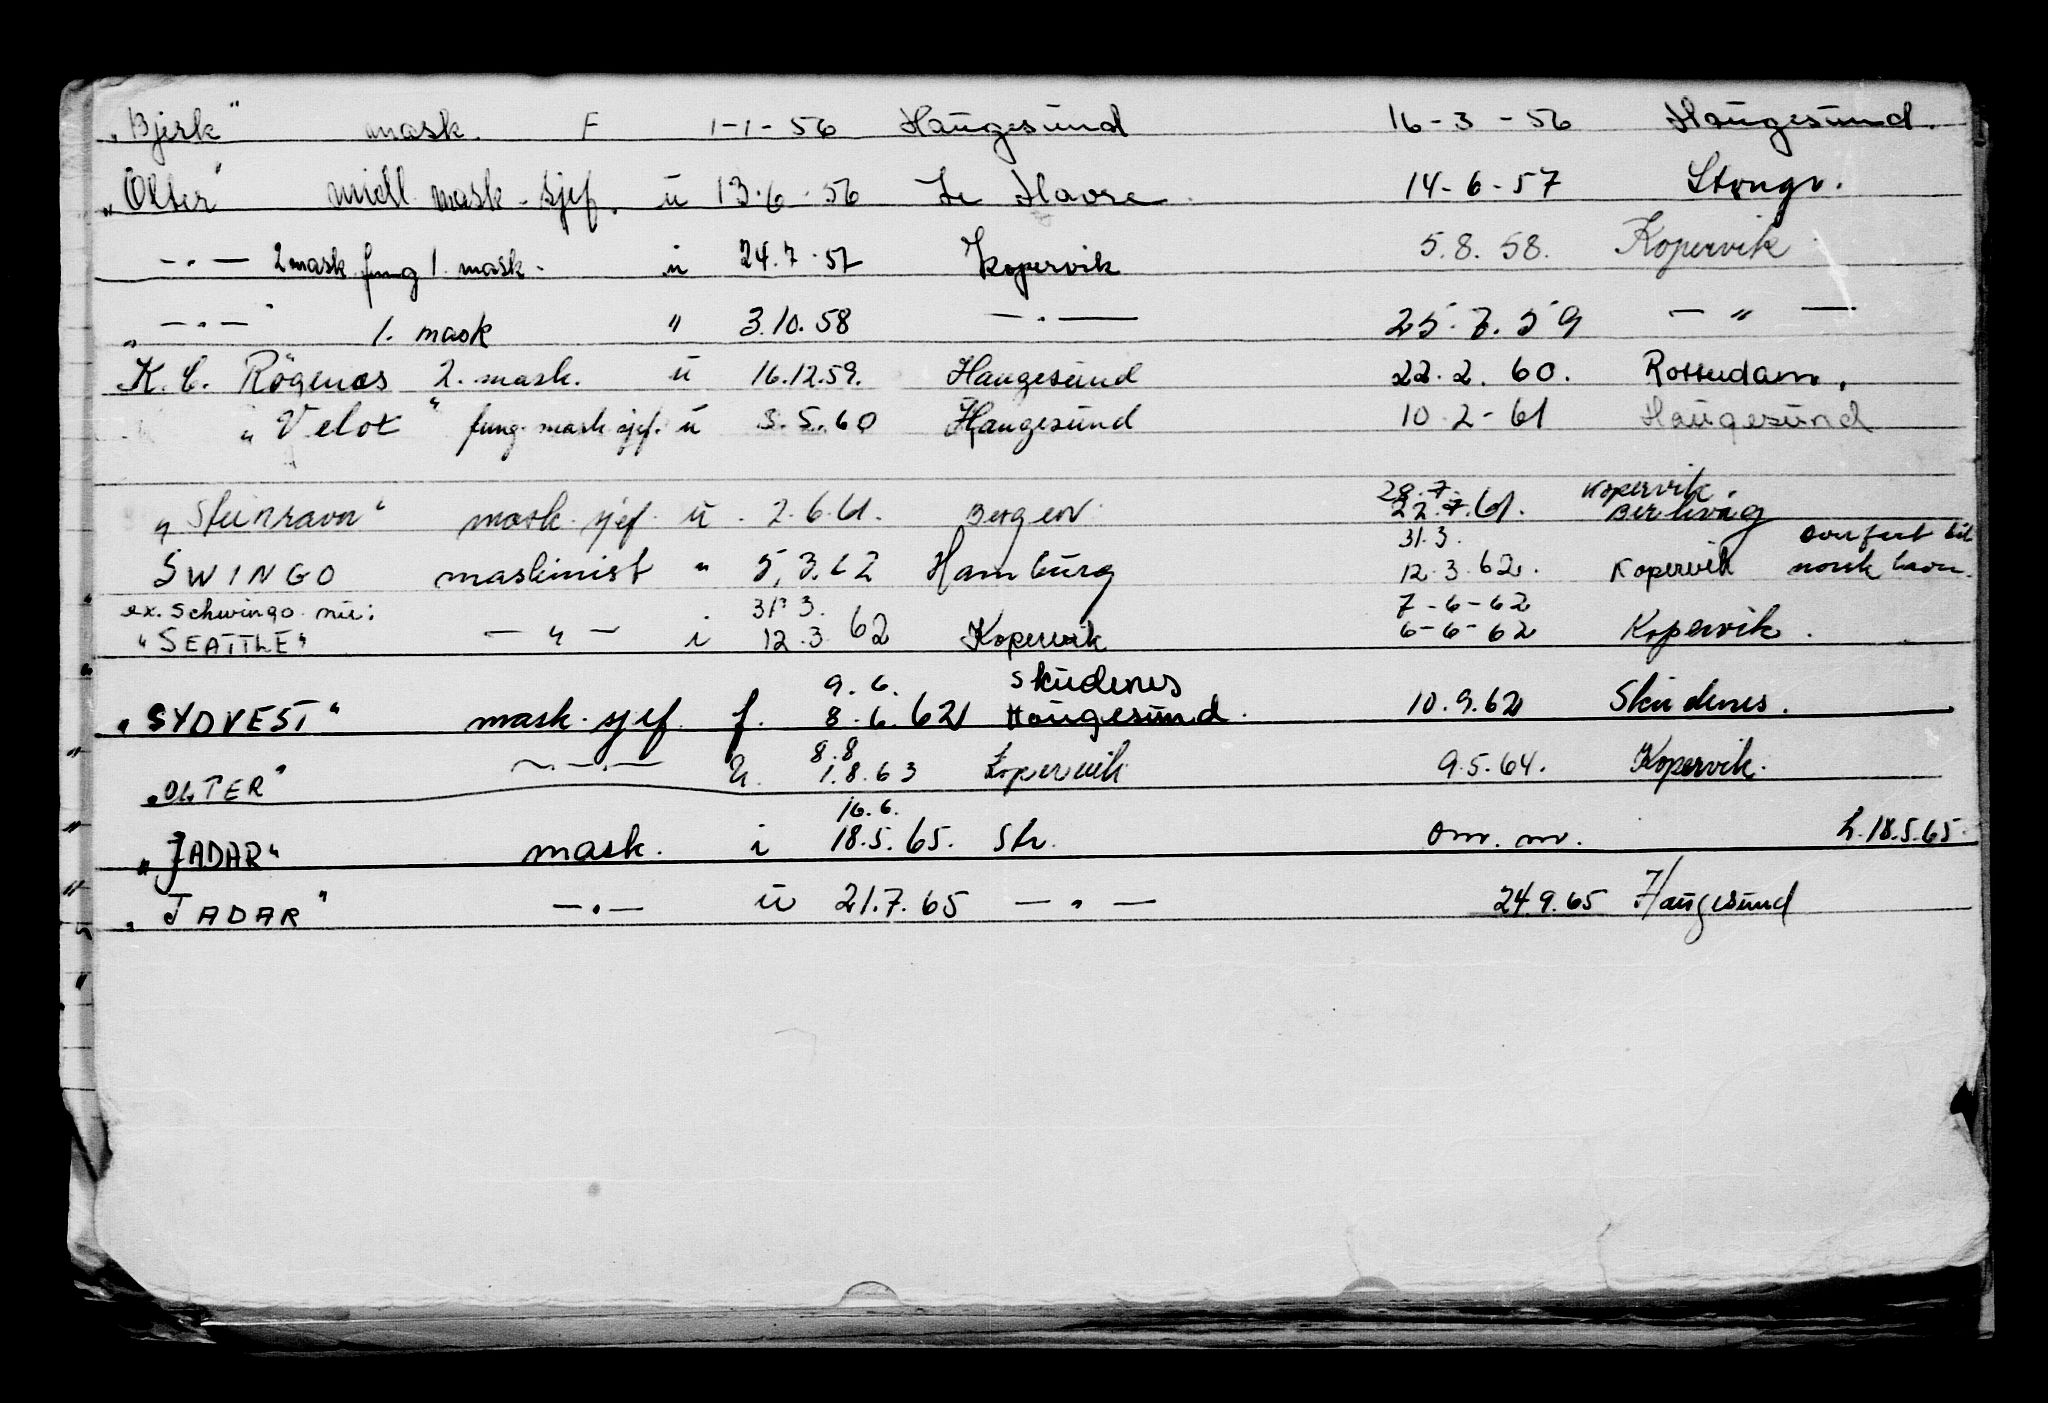 "Bjerk" mask. F 1-1-56 Haugesund 16-3-56 Haugesund.
"Olter" midl mask-sjef. u 13.6-56 Le Havre. 14-6-57 Stongv.
-"- 2 mask fung 1. mask. u 24.7.57 Kopervik 5.8.58. Kopervik
-"- 1. mask " 3.10.58 -"- 25.7.59 -"-
K. C. Rogenæs 2. mask. u 16.12.59. Haugesund 22.2.60. Rotterdam.
"Velox" fung. mask sjef. u 3.5.60 Haugesund 10.2-61 Haugesund
28.7. Kopervik
"Steinravn" mask. sjef. u. 2.6.61. Bergen. 22.7.61. Berlevåg
31.3. overført til
SWINGO maskinist " 5,3.62 Hamburg 12.3.62. Kopervik norsk havn.
ex. Schwingo. nu: 31.3. 7-6-62
"SEATTLE" -"- i 12.3.62 Kopervik 6-6-62 Kopervik.
9.6. Skudenes
"SYDVEST" mask. sjef. f. 8.6.62 Haugesund. 10.9.62 Skudenes.
8.8
"OLTER" -"- u. 1.8.63 Kopervik 9.5.64. Kopervik.
16.6.
"JADAR" mask. i 18.5.65. Sth. om. m. h. 18.5.65.
"JADAR" -"- u 21.7.65 -"- 24.9.65 Haugesund